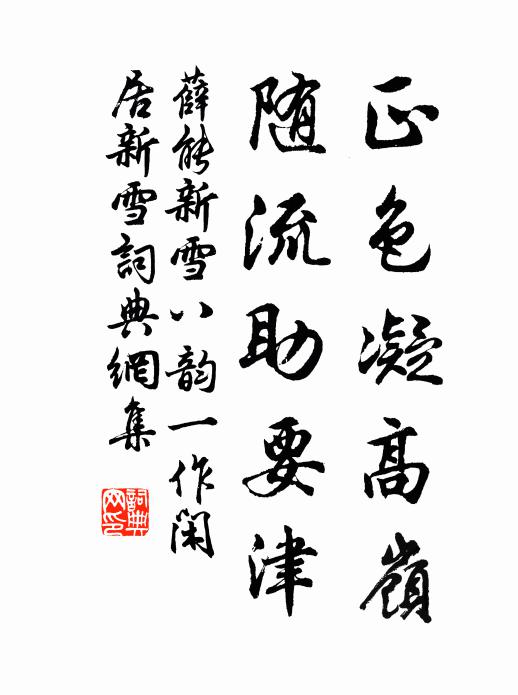 正色凝高嶺
随流助要津
薛能新雪八韵一作閑
居新雪詞典網集
詞典网印